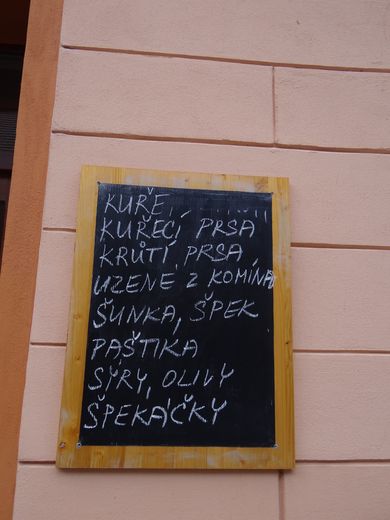 KUŘE,
KUŘECÍ PRSA
KRŮTÍ PRSA
UZENÉ Z KOMÍNA
ŠUNKA, ŠPEK
PAŠTIKA
SÝRY, OLIVY
ŠPEKÁČKY